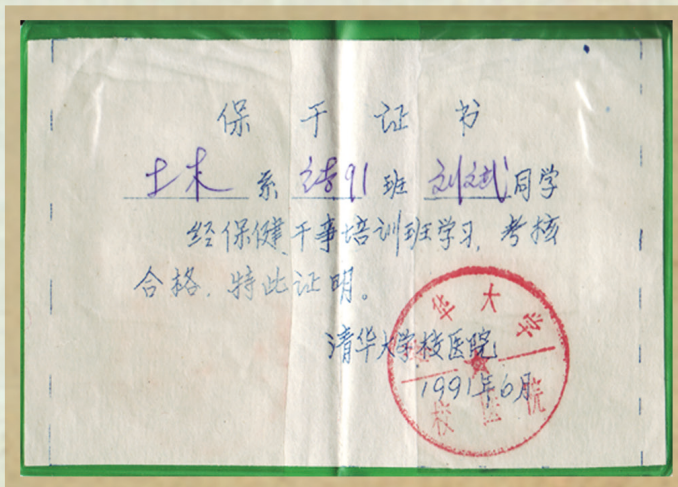 保干证书
土木系 结91班 刘斌同学
经保健干事培训班学习,考核
合格,特此证明。
清华大学校医院
1991年6月
清华大学
校医院